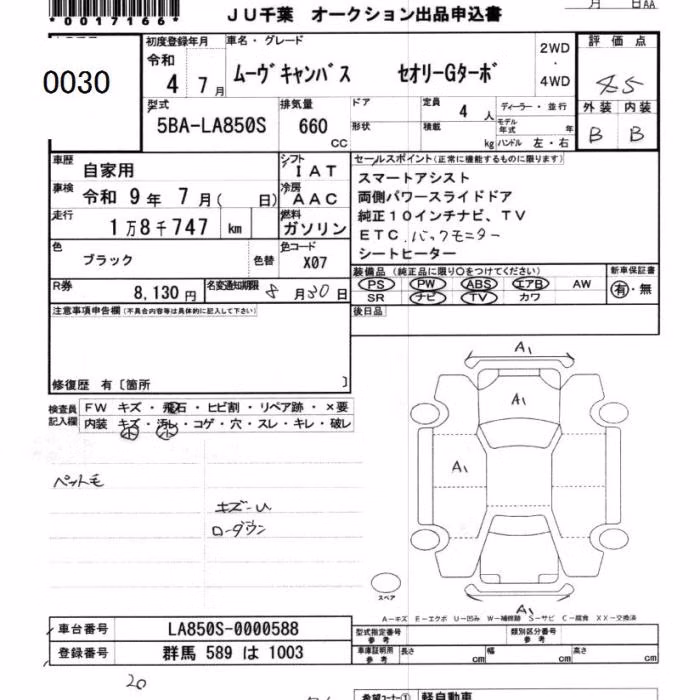 *0017166*
JU千葉 オークション出品申込書
月 日AA
0030
初度登録年月 車名・グレード 評価点
令和 4 7月 ムーヴキャンバス セオリーGターボ 2WD・4WD 4.5
型式 排気量 ドア 定員 ディーラー・並行 外装 内装
5BA-LA850S 660 CC 形状 4人 積載 kg モデル年式 年 ハンドル 左・右 B B
車歴 自家用 シフト IAT セールスポイント(正常に機能するものに限ります)
車検 令和 9年 7月( 日) 冷房 AAC スマートアシスト
両側パワースライドドア
走行 1万8千747 km 燃料 ガソリン 純正10インチナビ、TV
ETC.バックモニター
色 ブラック 色替 色コード X07 シートヒーター
装備品(純正品に限り○をつけてください) 新車保証書
R券 8,130円 名変通知期限 8月30日 PS PW ABS エアB AW 有・無
SR ナビ TV カワ
注意事項申告欄(不具合内容等は具体的に記入して下さい) 後日品
修復歴 有〔箇所 〕
検査員記入欄 FW キズ・飛石・ヒビ割・リペア跡・×要
内装 キズ・汚レ・コゲ・穴・スレ・キレ・破レ
小 小
ペット毛
キズ-U
ローダウン
A1
A1
A1
A1
スペア
A-キズ E-エクボ U-凹み W-補修跡 S-サビ C-腐食 XX-交換済
車台番号 LA850S-0000588 型式指定番号 参考 類別区分番号 参考
登録番号 群馬 589 は 1003 車庫証明用 参考 長さ cm 幅 cm 高さ cm
20
希望コーナー① 軽自動車